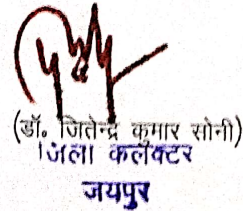 (डॉ. जितेन्द्र कुमार सोनी)
जिला कलेक्टर
जयपुर